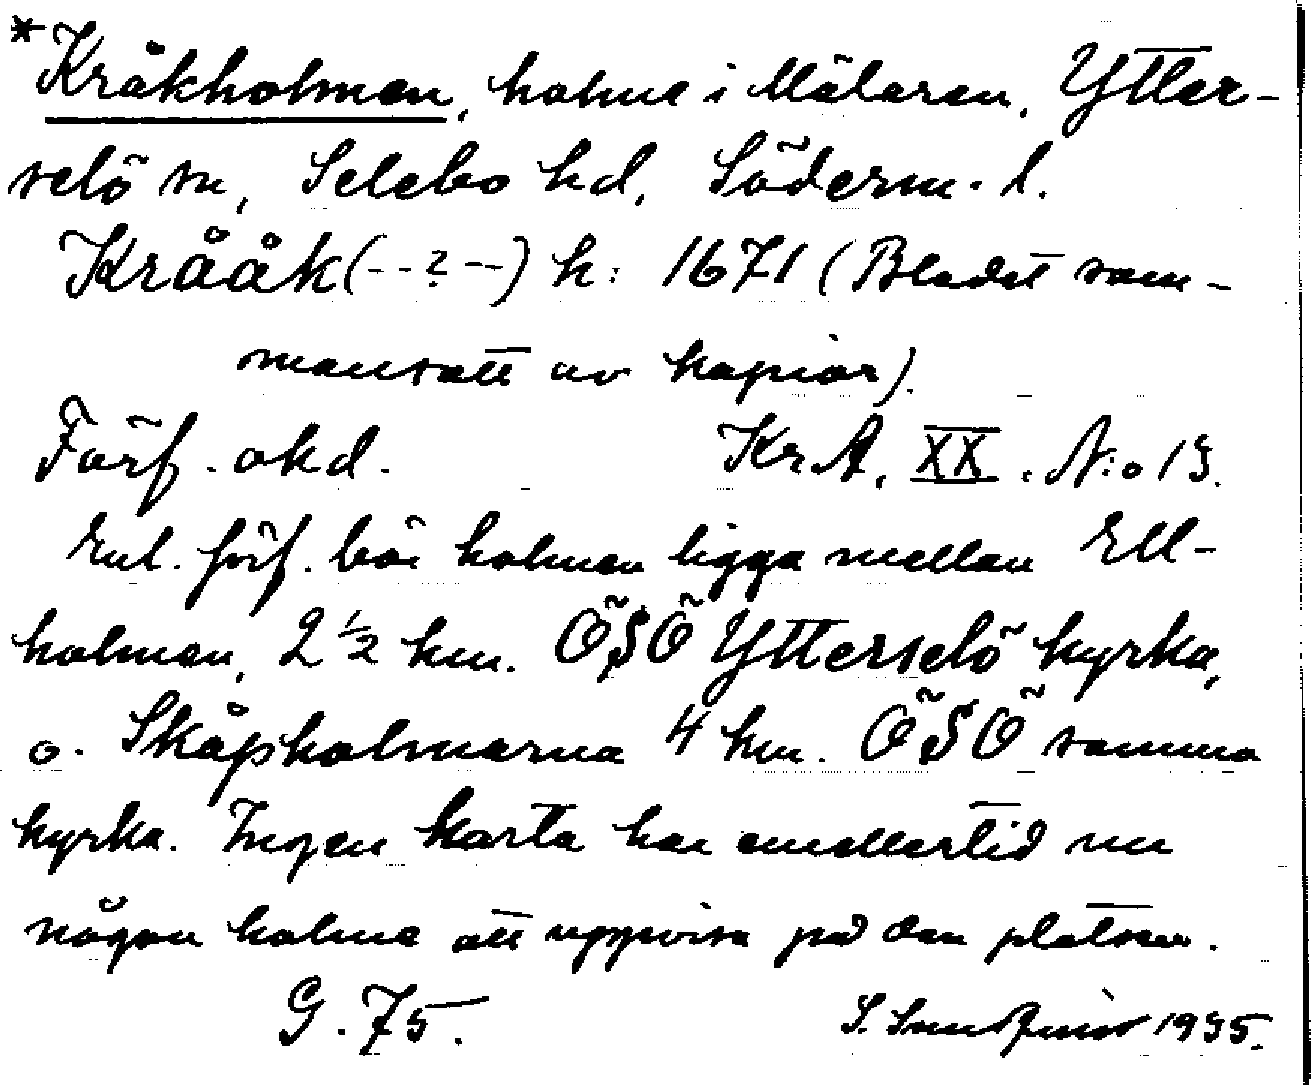 *Kråkholmen, holme i Mälaren, Ytter-
selö sn, Selebo hd, Söderm. l.
Krååk(--?--) h: 1671 (Bladet sam-
mansatt av kopior).
Förf. okd. Kr.A. XX. N:o 13.
Enl. förf. bör holmen ligga mellan Ell-
holmen, 2 ½ km. ÖSÖ Ytterselö kyrka,
o. Skåpholmarna 4 km. ÖSÖ samma
kyrka. Ingen karta har emellertid nu
någon holme att uppvisa på den platsen.
G. 75. S. 1935.